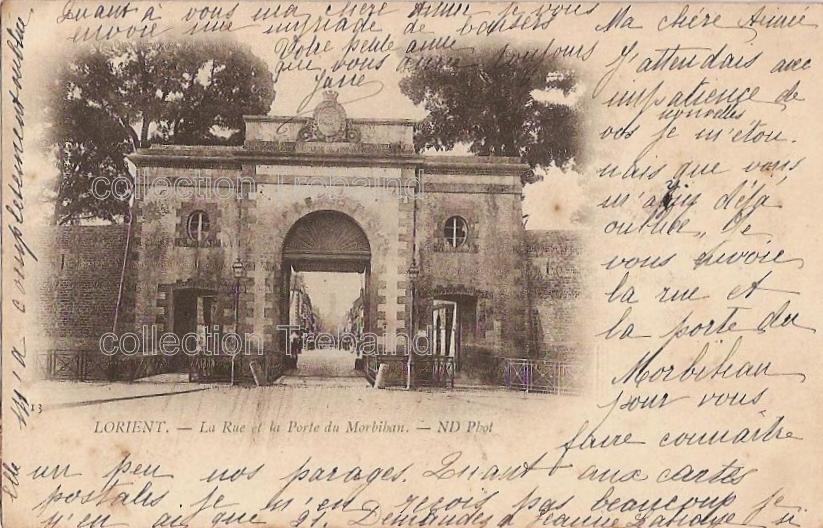 Ma chére Aimée
J'attendais avec
impatience de
vos nouvelles je m'éton.
nais que vous
m'ayiez déjà
oubliée. Je
vous envoie
la rue et
la porte du
Morbihan
pour vous
faire connaître
un peu nos parages. Quant aux cartes
postales je m'en reçois pas beaucoup je
n'en ai que 21. Demandes à Jeanne si
elle m'a complètement oubliée
Quant à vous ma chère Aimée je vous
envoie une myriade de baisers
Votre petite amie
qui vous aime toujours
Jane
collection Trebaund
collection Trebaund
13
LORIENT. — La Rue et la Porte du Morbihan. — ND Phot